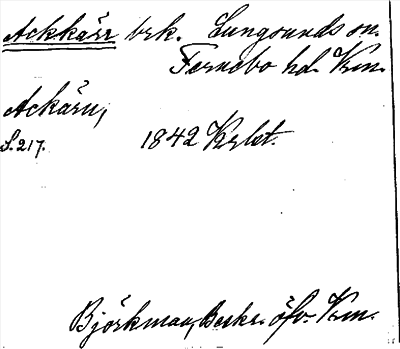 Ackkärr brk. Lungsunds sn.
Fernebo hd. Vrm.
Ackärn,
S. 217. 1842 Krbst.
Björkman, Beskr. öfv. Vrm.